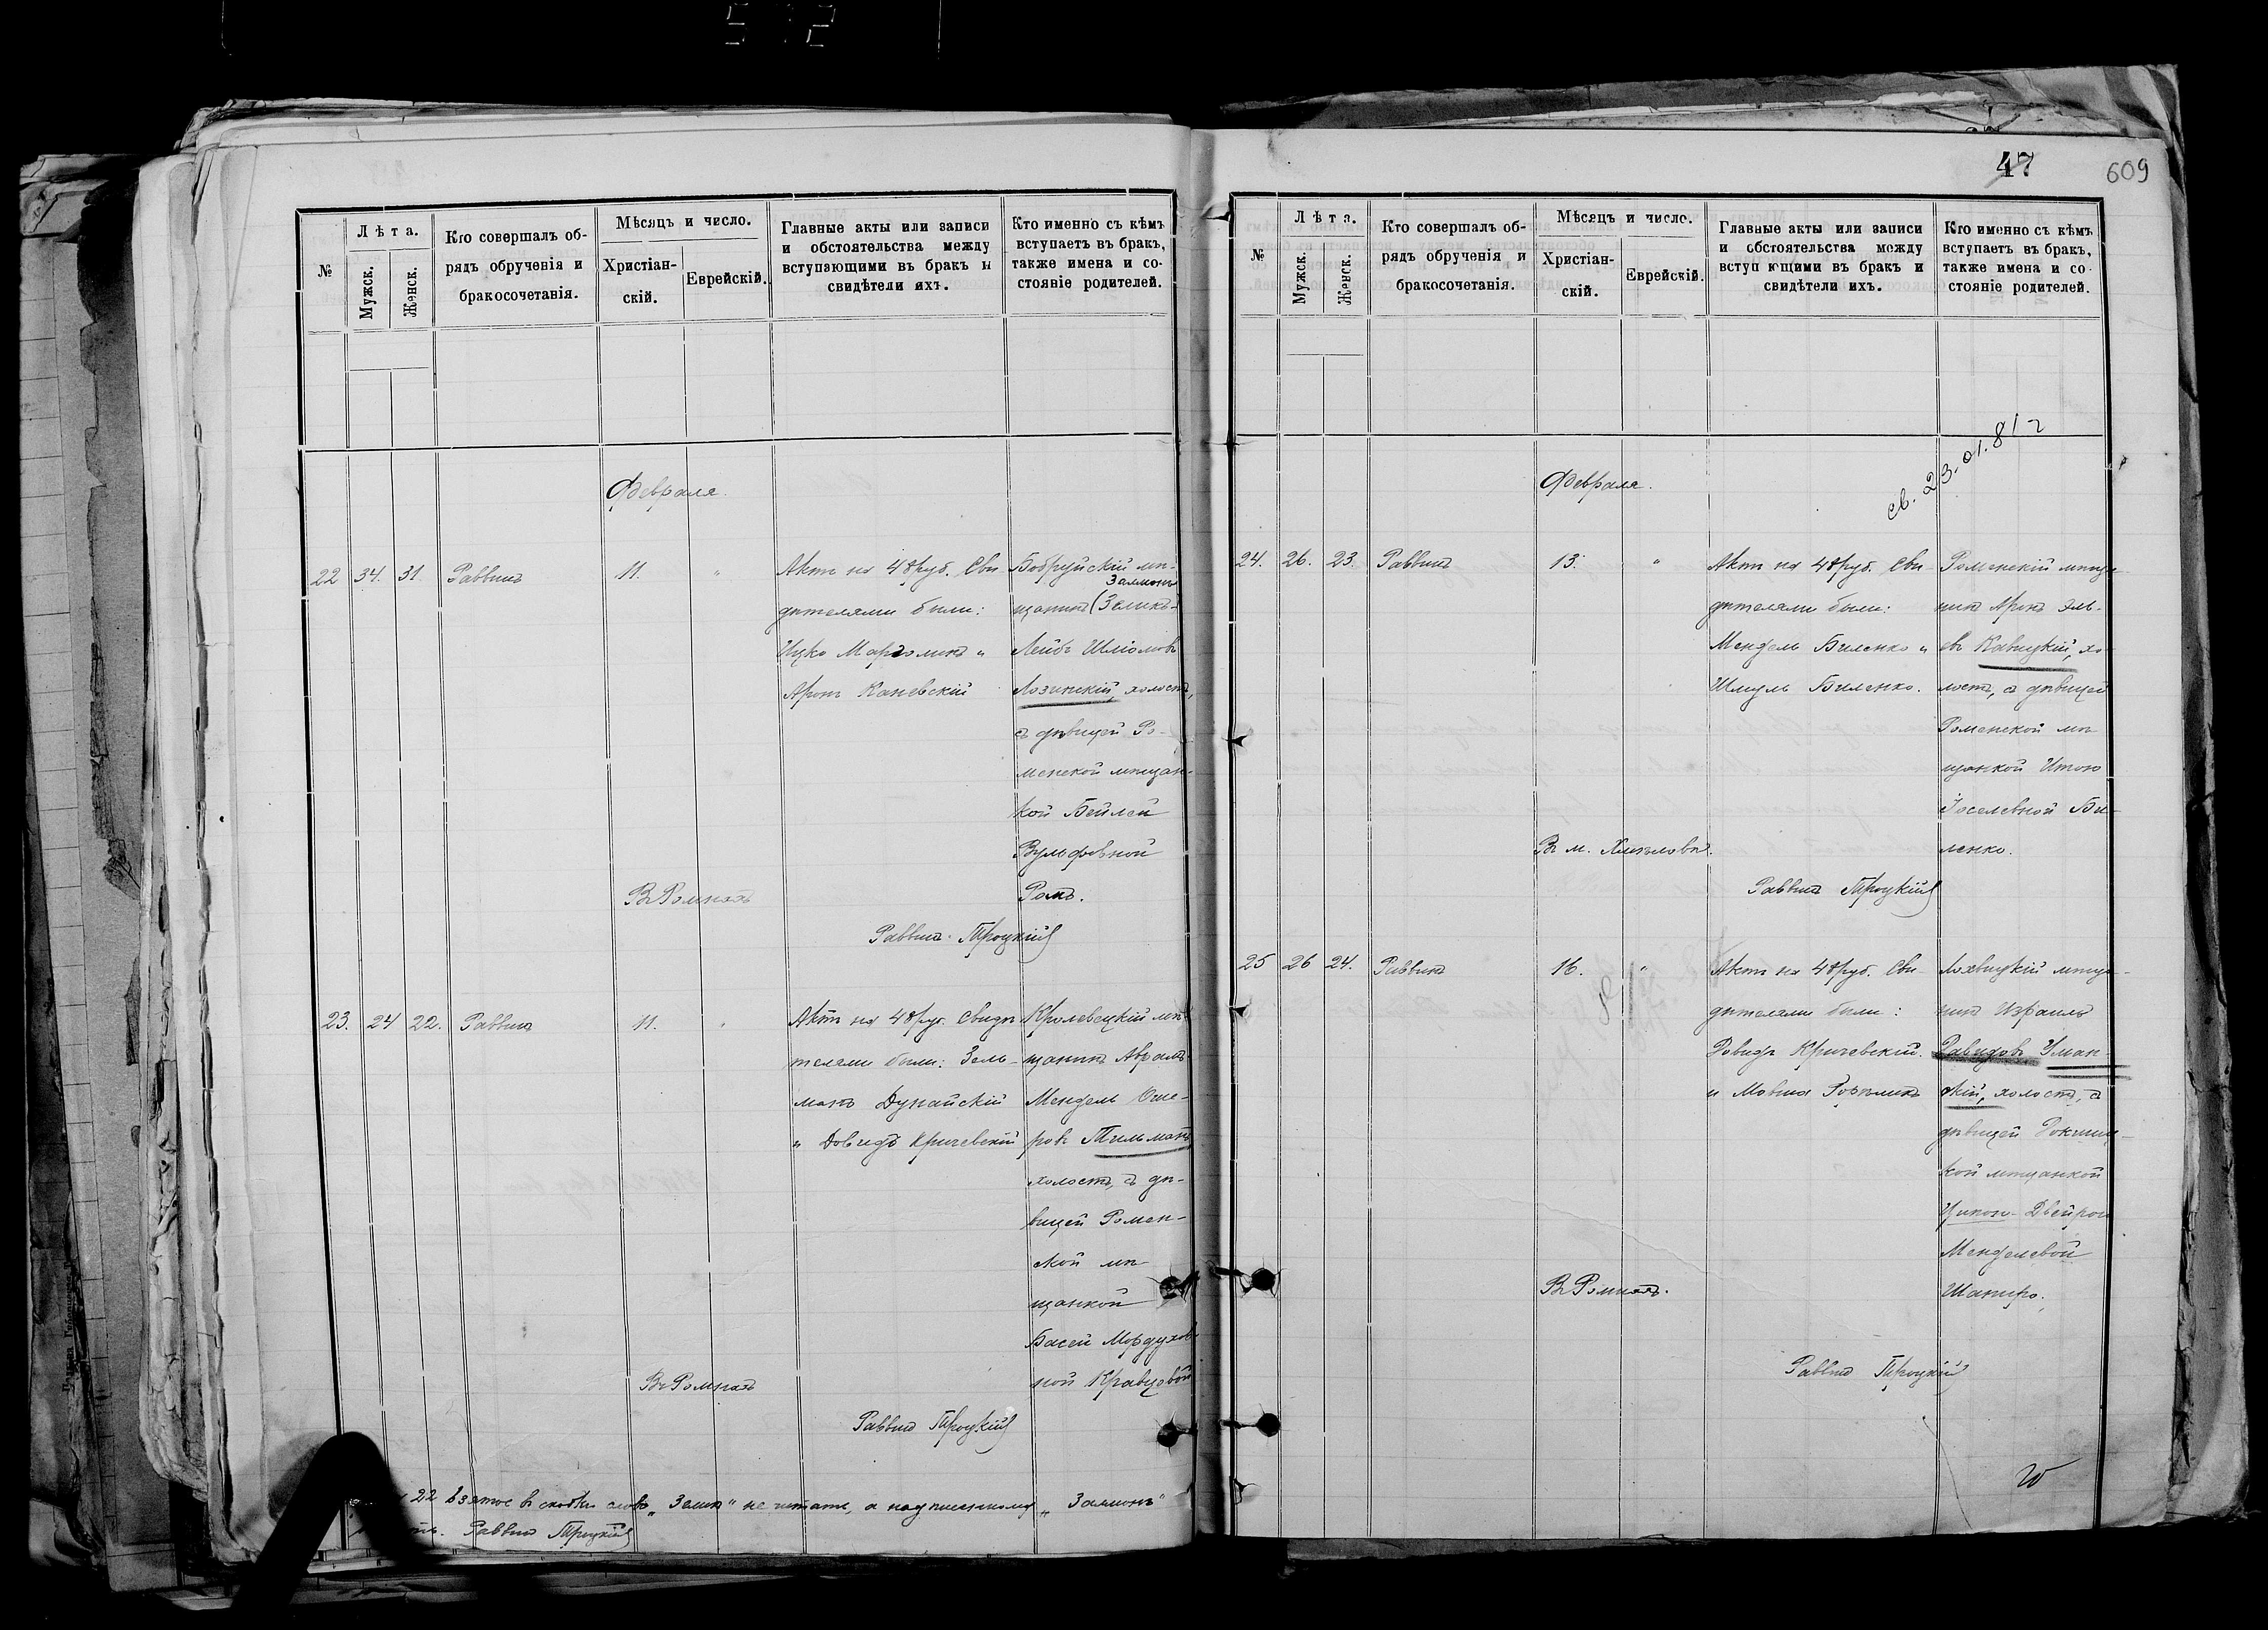 47
609
№
Лѣта.
Мужск.
Женск.
Кто совершалъ об-
рядъ обрученія и
бракосочетанія.
Мѣсяцъ и число.
Христіан-
скій.
Еврейскій.
Главные акты или записи
и обстоятельства между
вступающими въ бракъ и
свидѣтели ихъ.
Кто именно съ кѣмъ
вступаетъ въ бракъ,
также имена и со-
стояніе родителей.
Февраля.
22 34. 31. Раввинъ 11. "
Актъ на 48 руб. Сви
дѣтелями были:
Ицко Марголинъ и
Аронъ Каневскій
Бобруйскій мѣ-
Залманъ
щанинъ (Зеликъ)
Лейбъ Шліомовъ
Лозинскій, холостъ,
съ дѣвицей Ро-
менской мѣщан-
кой Бейлей
Вульфовной
Ромъ.
Въ Ромнахъ
Раввинъ Троцкій
23. 24 22. Раввинъ 11. "
Актъ на 48 руб. Свидѣ
телями были: Зель-
манъ Дунайскій
и Довидъ Кричевскій
Кролевецкій мѣ
щанинъ Авраамъ
Мендель Оше-
ровъ Тильманъ
холостъ, съ дѣ-
вицей Ромен-
ской мѣ
щанкой
Басей Мордухов
ной Кравцовой
Въ Ромнахъ
Раввинъ Троцкій
22 взятое в скобки слово „Зелик" не читать, а надписанному „Залманъ"
Раввинъ Троцкій
№
Лѣта.
Мужск.
Женск.
Кто совершалъ об-
рядъ обрученія и
бракосочетанія.
Мѣсяцъ и число.
Христіан-
скій.
Еврейскій.
Главные акты или записи
и обстоятельства между
вступ ющими въ бракъ и
свидѣтели ихъ.
Кто именно съ кѣмъ
вступаетъ въ бракъ,
также имена и со-
стояніе родителей.
св. 23.01.81 г
Февраля.
24. 26. 23. Раввинъ 13. "
Актъ на 48 руб. Сви
дѣтелями были:
Мендель Биленко и
Шмуль Биленко.
Роменскій мѣща
нинъ Аронъ Эль-
евъ Кавицкій, хо-
лостъ, съ дѣвицей
Роменской мѣ
щанкой Итою
Іоселевной Би-
ленко.
Въ м. Хмѣловѣ.
Раввинъ Троцкій
25 26 24. Раввинъ 16. "
Актъ на 48 руб. Сви-
дѣтелями были:
Довидъ Кричевскій.
и Мовша
Лохвицкій мѣща-
нинъ Израиль
Давидовъ Уман-
скій, холостъ, съ
дѣвицей
кой мѣщанкой
Двейрой
Менделевой
Шапиро.
Въ Ромнахъ.
Раввинъ Троцкій